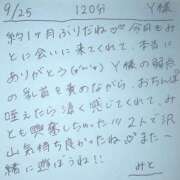 9/25 120分 Y様
約1ヶ月ぶりだね♡今日もみ
とに会いに来てくれて、本当に
ありがとう(≧∀≦)Y様のおちんぽ
の乳首を責めながら、おちんぽ
咥えたら凄く感じてくれて、み
とも興奮しちゃった!!!2人で沢
山気持ち良かったね♡また一
緒に遊ぼうね!!
みと